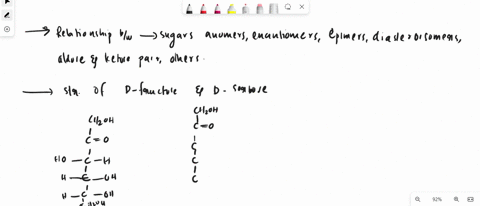 → Relationship b/w → sugars anomers, enantiomers, Epimers, diastereoisomers,
aldose & ketose pair, others.
→ Str. of D-fructose & D-sorbose
CH2OH
C=O
HO-C-H
H-C-OH
H-C-OH
CH2OH
CH2OH
C=O
C
C
C
92%